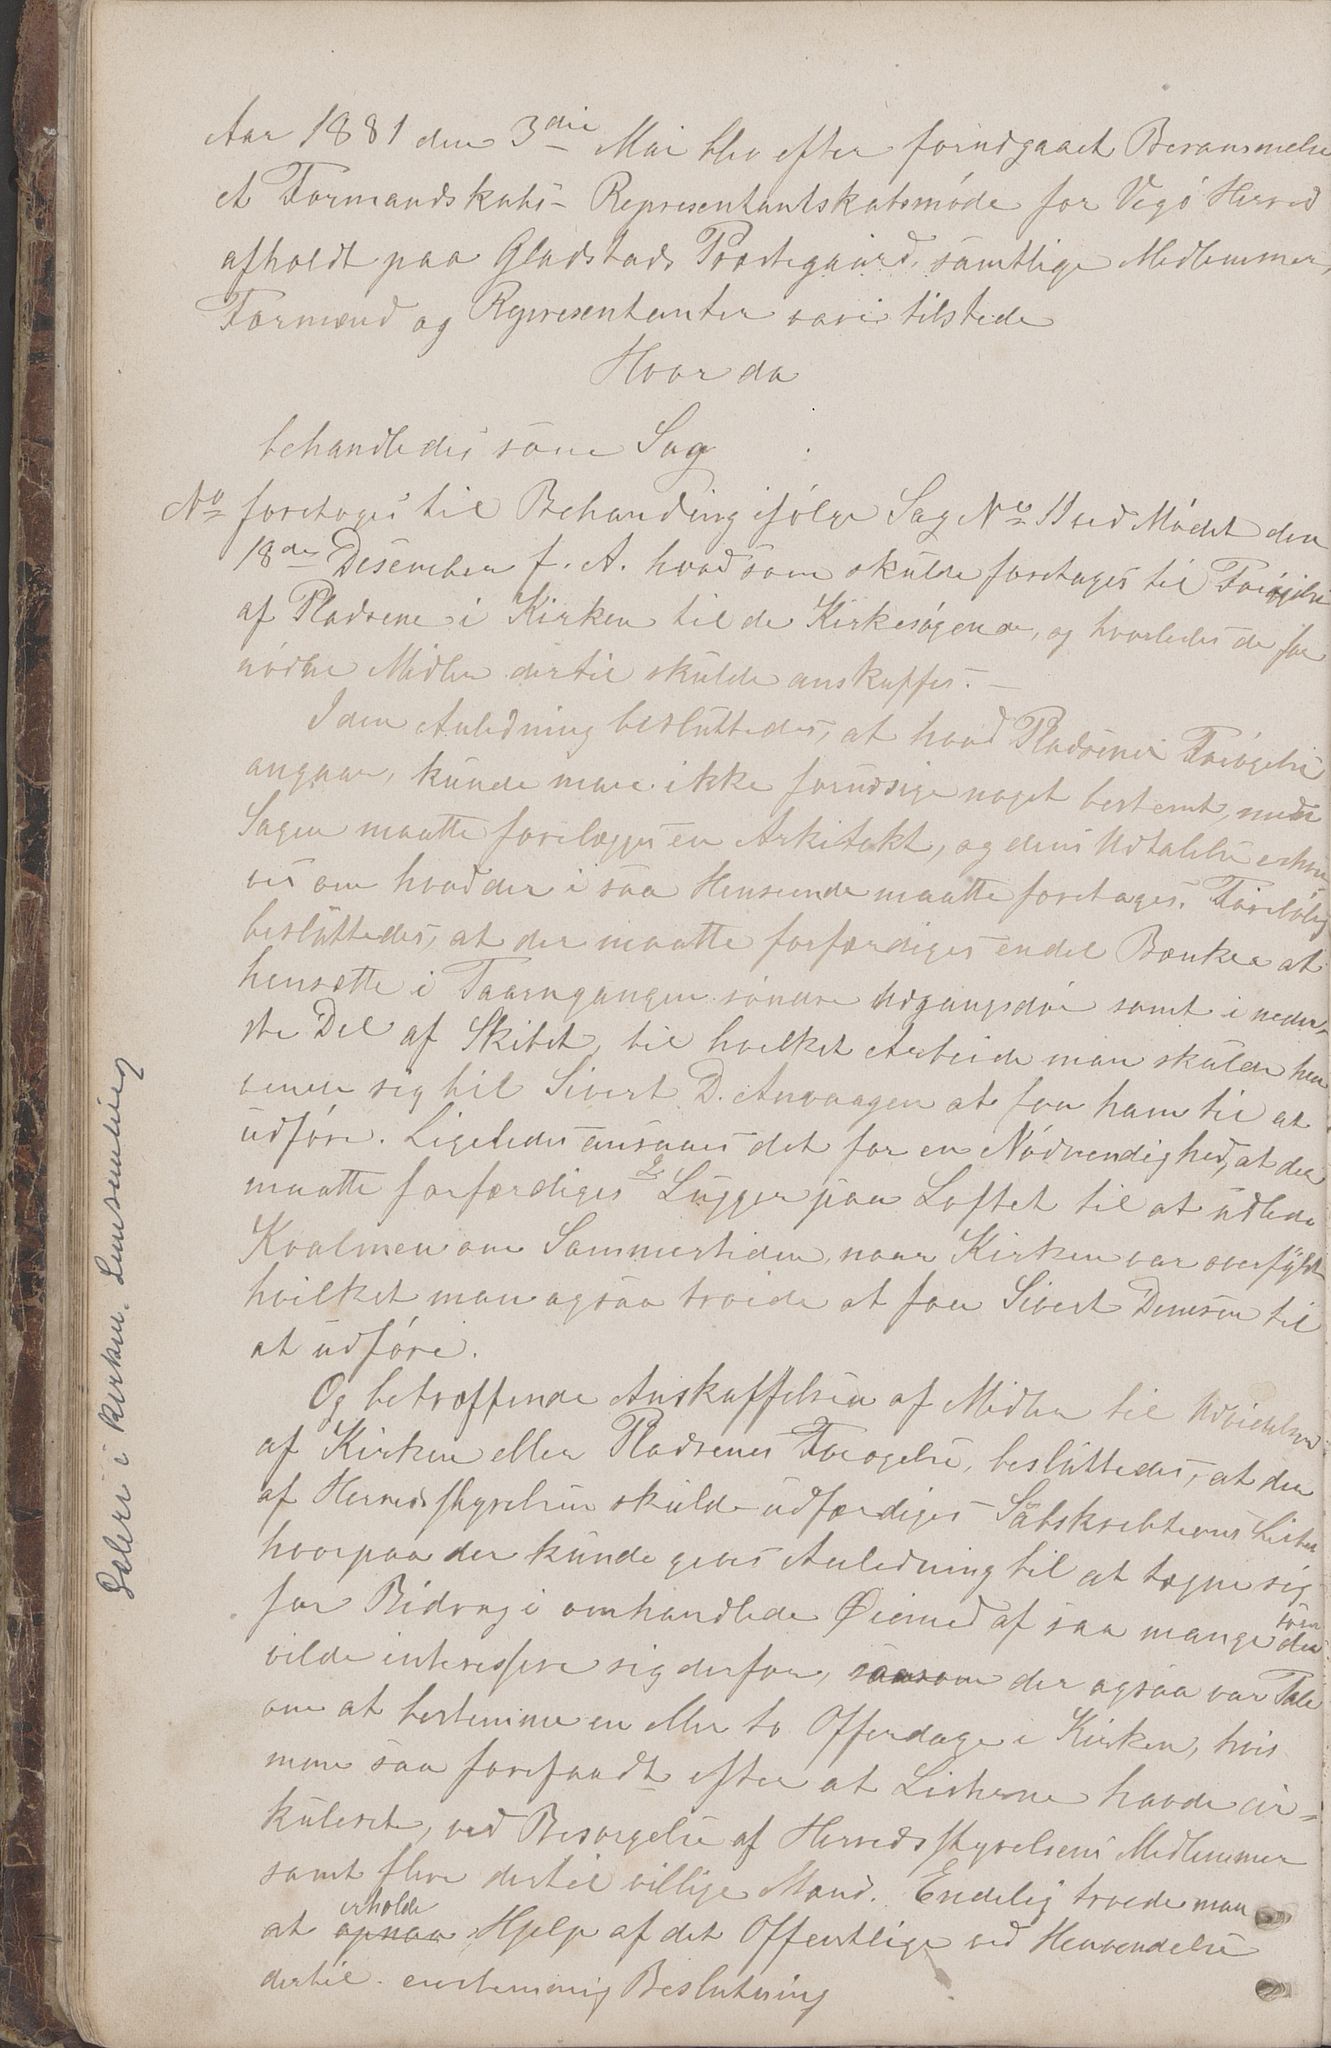 Aar 1881 den 3die Mai blev efter forudgaaet Berammelse
et Formandskabs- Representantskabsmøde for Vegø Herred
afholdt paa Gladstads Præstegaard, samtlige Medlemmer,
Formænd og Representanter vare tilstede
Hvor da
behandledes som Sag
No foretoges til Behandling ifølge Sag No 11 ved Mødet den
18de Desember f. A. hvad som skulde foretages til Forøgelse
af Pladsene i Kirken til de Kirkesøgende, og hvorledes de for
nødne Midler dertil skulde anskaffes. —
I den Anledning besluttedes, at hvad Pladsenes Forøgelse
angaar, kunde man ikke forudsige noget bestemt, men
Sagen maatte forelægges en Arkitekt, og dens Udtalelse erhver
ves om hvad der i saa Henseende maatte foretages. Foreløbig
besluttedes, at der maatte forfærdiges endel Bænker at
hensætte i Taarngangen søndre Udgangsdør samt i neder-
ste Del af Skibet, til hvilket Arbeide man skulde hen
vende sig til Sivert D. Anvaagen at faa ham til at
udføre. Ligeledes ansaaes det for en Nødvendighed, at der
maatte forfærdiges 2 Lugger paa Loftet til at udlede
Kvalmen om Sommertiden, naar Kirken var overfyldt
hvilket man ogsaa troede at faa Sivert Densen til
at udføre.
Og betræffende Anskaffelsen af Midler til Udvidelsen
af Kirken eller Pladsenes Forøgelse, besluttedes, at der
af Herredsstyrelsen skulde udfærdiges Subskribtions Lister
hvorpaa der kunde gives Anledning til at tegne sig
for Bidrag i omhandlede Øiemed af saa mange som der
vilde interessere sig derfor, saasom der ogsaa var Tale
om at bestemme en eller to Offerdage i Kirken, hvis
man saa forefandt efter at Listerne havde cir-
kuleret, ved Besørgelse af Herredsstyrelsens Medlemmer
samt flere dertil villige Mænd. Endelig troede man
at opnaa erholde Hjelp af det Offentlige ved Henvendelse
dertil. enstemmig Beslutning
Seler i kirken. Lensemling